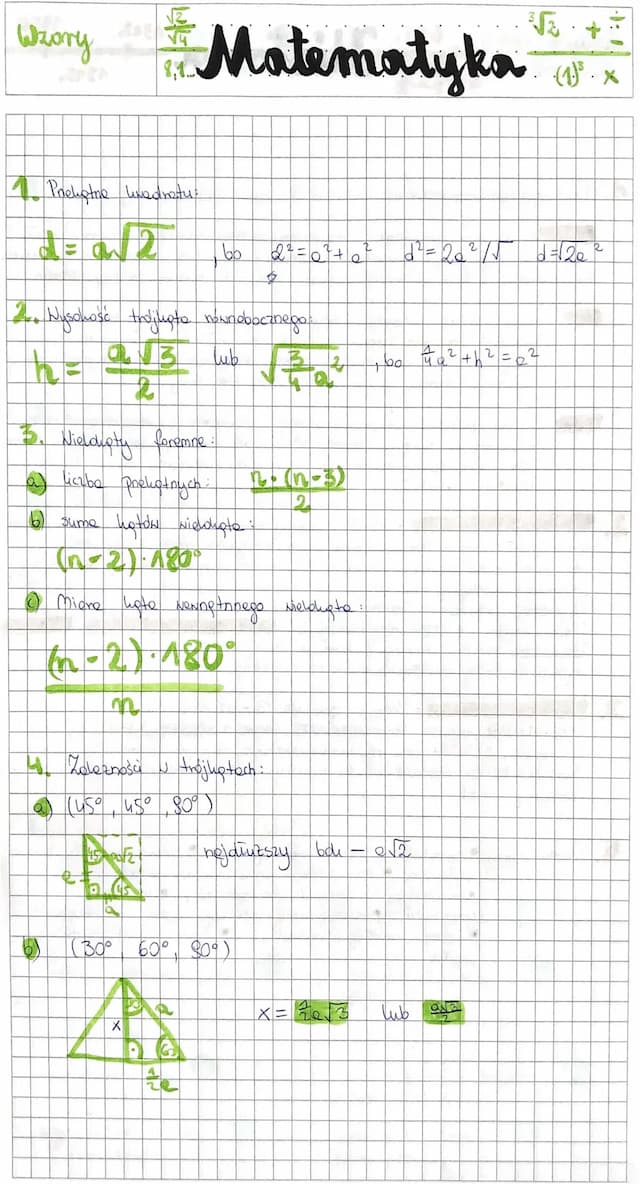 Wzory
√2/√4
8,1
Matematyka
³√2 + ÷
(1)³ · x
1. Przekątna kwadratu:
d = a√2 , bo d² = a² + a² d² = 2a² /√ d = √2a²
2. Wysokość trójkąta równobocznego:
h = a√3/2 lub √3/4 a² , bo 1/4a² + h² = a²
3. Wielokąty foremne:
a) liczba przekątnych: n·(n-3)/2
b) suma kątów wielokąta:
(n-2)·180°
c) Miara kąta wewnętrznego wielokąta:
(n-2)·180°/n
4. Zależności w trójkątach:
a) (45°, 45°, 90°)
45 a√2 najdłuższy bok - a√2
a 45
a
b) (30°, 60°, 90°)
30 a
x x = 1/2a√3 lub a√3/2
60
1/2a